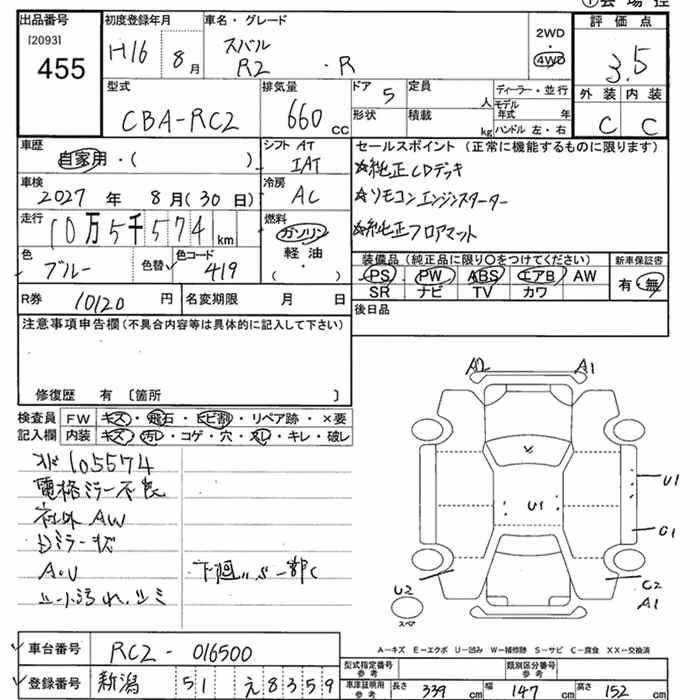 出品番号
[2093]
455
初度登録年月
H16 8月
車名・グレード
スバル
R2 ・R
2WD
・
4WD
評価点
3.5
外装 内装
C C
型式
CBA-RC2
排気量
660 cc
ドア 5
形状
定員 人
積載 kg
ディーラー・並行
モデル年式 年
ハンドル 左・右
車歴
自家用・( )
シフト AT
IAT
車検
2027年 8月(30日)
冷房
AC
走行
10万5千574 km
燃料
ガソリン
軽油
( )
色
ブルー
色替
色コード
419
R券 10120円
名変期限 月 日
セールスポイント(正常に機能するものに限ります)
☆純正CDデッキ
☆リモコンエンジンスターター
☆純正フロアマット
装備品(純正品に限り○をつけてください)
PS PW ABS エアB AW
SR ナビ TV カワ
新車保証書
有・無
後日品
注意事項申告欄(不具合内容等は具体的に記入して下さい)
修復歴 有 〔箇所 〕
検査員 FW キズ・飛石・ヒビ割・リペア跡・×要
記入欄 内装 キズ・汚レ・コゲ・穴・スレ・キレ・破レ
105574
電格ミラー不良
社外AW
A.U
下廻 一部C
A2 A1
U1
U1
G1
U2
スペア
C2
A1
A-キズ E-エクボ U-凹み W-補修跡 S-サビ C-腐食 XX-交換済
車台番号 RC2-016500
登録番号 新潟 51 え8359
型式指定番号 参考
類別区分番号 参考
車庫証明用 参考 長さ 339cm 幅 147cm 高さ 152cm